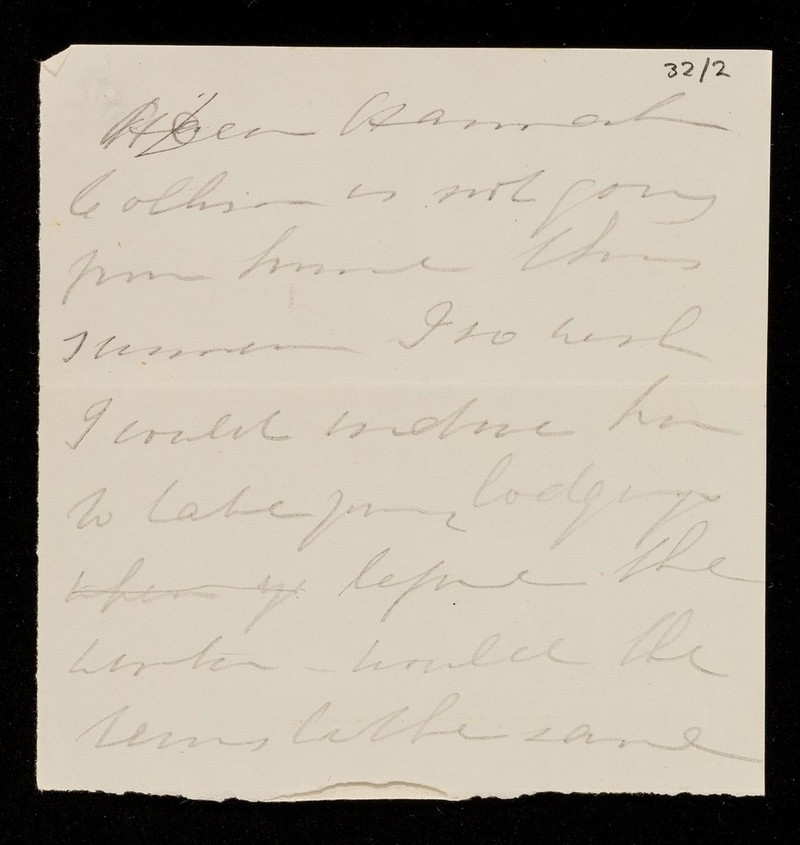 32/2
Dear Hannah
is not going
from home this
summer I so wish
I could induce him
to take your lodgings
before the
winter - would the
terms be the same